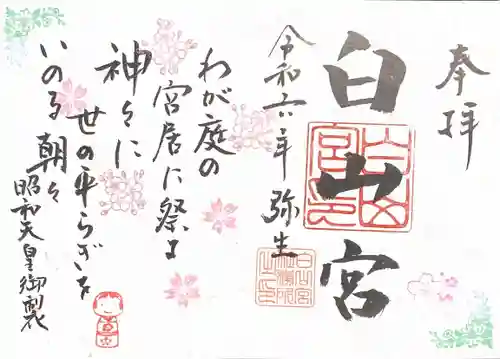 奉拝
白山宮
令和六年 弥生
わが庭の
宮居に祭る
神々に
世の平らぎを
いのる朝々
昭和天皇御製